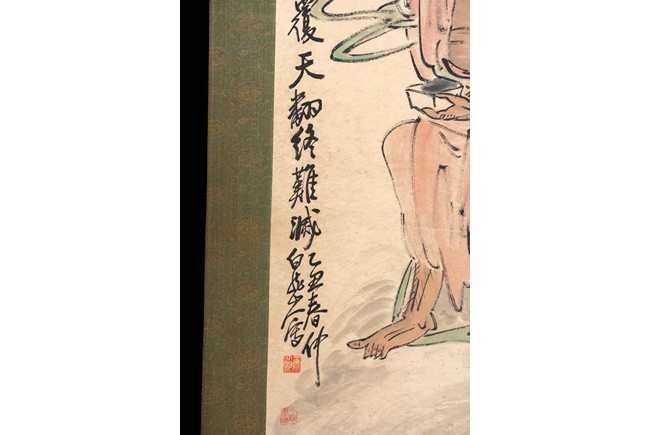 覆天翻終難滅
乙丑春仲
白龍山人寫